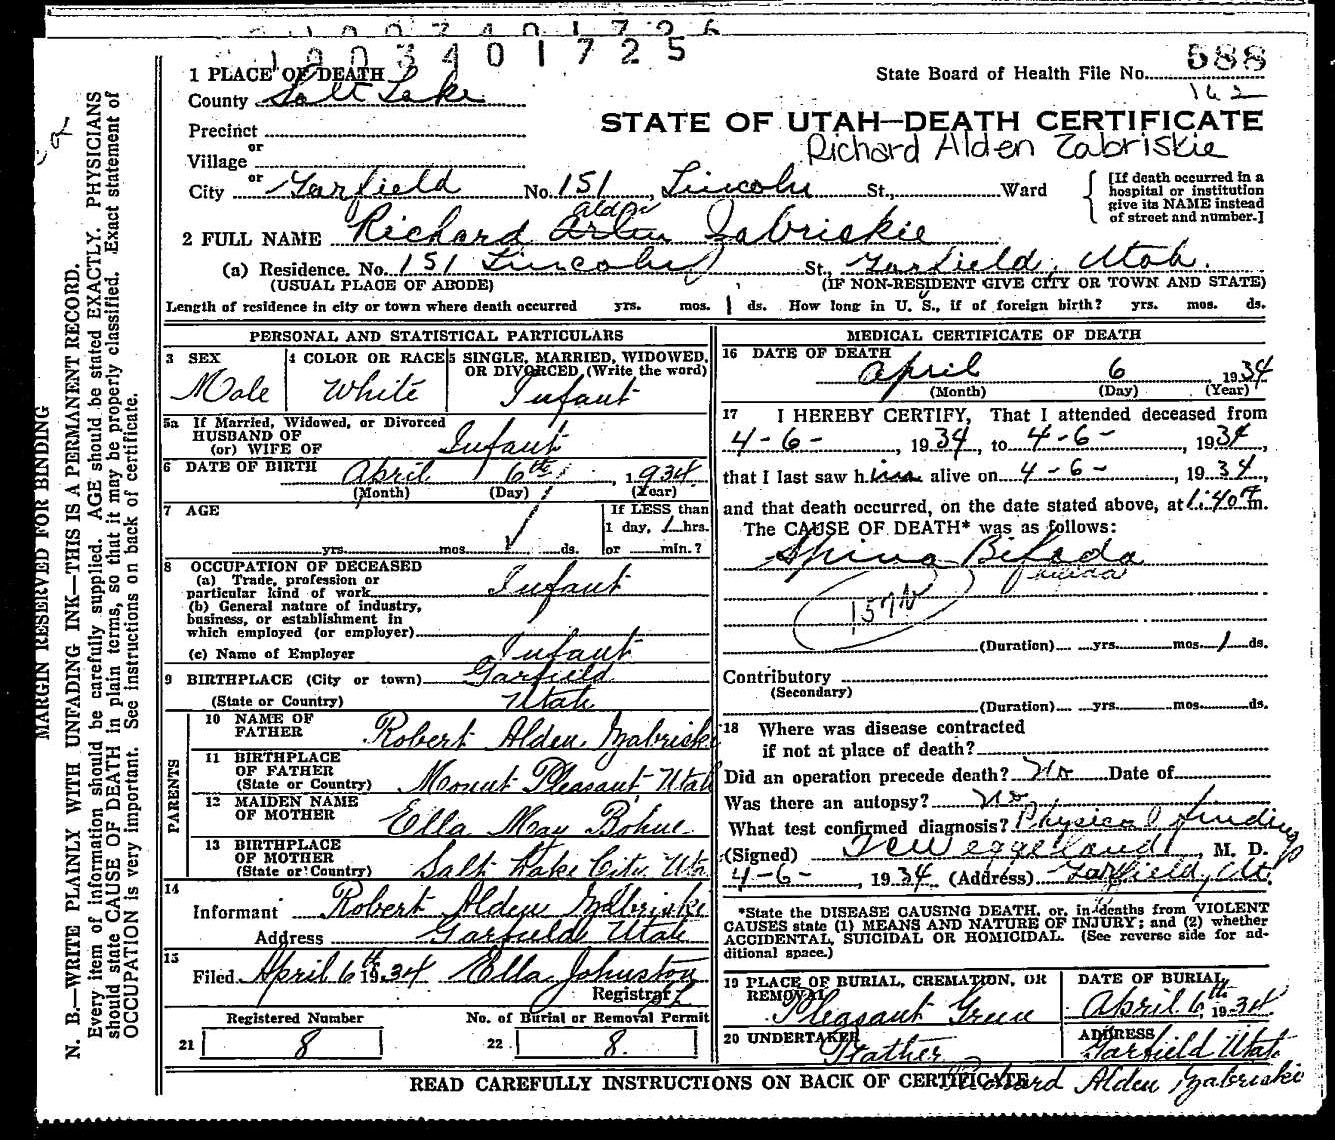 1003401726
1003401725
588
1 PLACE OF DEATH
State Board of Health File No.
County Salt Lake
162
Precinct
STATE OF UTAH—DEATH CERTIFICATE
or
Richard Alden Zabriskie
Village
or
City Garfield No. 151 Lincoln St., Ward
[If death occurred in a hospital or institution give its NAME instead of street and number.]
Alden
2 FULL NAME Richard Zabriskie
(a) Residence. No. 151 Lincoln St., Garfield, Utah.
(USUAL PLACE OF ABODE) (IF NON-RESIDENT GIVE CITY OR TOWN AND STATE)
Length of residence in city or town where death occurred yrs. mos. 1 ds. How long in U. S., if of foreign birth? yrs. mos. ds.
PERSONAL AND STATISTICAL PARTICULARS
3 SEX
Male
4 COLOR OR RACE
White
5 SINGLE, MARRIED, WIDOWED,
OR DIVORCED, (Write the word)
Infant
5a If Married, Widowed, or Divorced
HUSBAND OF
(or) WIFE OF Infant
6 DATE OF BIRTH April 6th, 1934
(Month) (Day) (Year)
7 AGE
yrs. mos. ds.
If LESS than
1 day, 1 hrs.
or min.?
8 OCCUPATION OF DECEASED
(a) Trade, profession or
particular kind of work Infant
(b) General nature of industry,
business, or establishment in
which employed (or employer)
(c) Name of Employer Infant
9 BIRTHPLACE (City or town) Garfield
(State or Country) Utah
PARENTS
10 NAME OF
FATHER Robert Alden Zabriskie
11 BIRTHPLACE
OF FATHER
(State or Country) Mount Pleasant Utah
12 MAIDEN NAME
OF MOTHER Ella May Bohne
13 BIRTHPLACE
OF MOTHER
(State or Country) Salt Lake City, Uta
14
Informant Robert Alden Zabriskie
Address Garfield Utah
15
Filed April 6th 1934 Ella Johnston
Registrar
Registered Number No. of Burial or Removal Permit
21 8 22 8.
MEDICAL CERTIFICATE OF DEATH
16 DATE OF DEATH
April 6 1934
(Month) (Day) (Year)
17 I HEREBY CERTIFY, That I attended deceased from
4-6-, 1934, to 4-6-, 1934,
that I last saw him alive on 4-6-, 1934,
and that death occurred, on the date stated above, at 1:40 m.
The CAUSE OF DEATH* was as follows:
Spina Bifada
Bifida
157
(Duration) yrs. mos. 1 ds.
Contributory
(Secondary)
(Duration) yrs. mos. ds.
18 Where was disease contracted
if not at place of death?
Did an operation precede death? No Date of
Was there an autopsy? No
What test confirmed diagnosis? Physical findings
(Signed) Weggeland M. D.
4-6-, 1934 (Address) Garfield, Ut.
*State the DISEASE CAUSING DEATH, or, in deaths from VIOLENT
CAUSES state (1) MEANS AND NATURE OF INJURY; and (2) whether
ACCIDENTAL, SUICIDAL OR HOMICIDAL. (See reverse side for ad-
ditional space.)
19 PLACE OF BURIAL, CREMATION, OR
REMOVAL
Pleasant Green
DATE OF BURIAL
April 6th, 1934
20 UNDERTAKER
Father
ADDRESS
Garfield Utah
READ CAREFULLY INSTRUCTIONS ON BACK OF CERTIFICATE
Richard Alden Zabriskie
MARGIN RESERVED FOR BINDING
N. B.—WRITE PLAINLY WITH UNFADING INK—THIS IS A PERMANENT RECORD.
Every item of information should be carefully supplied. AGE should be stated EXACTLY. PHYSICIANS
should state CAUSE OF DEATH in plain terms, so that it may be properly classified. Exact statement of
OCCUPATION is very important. See instructions on back of certificate.